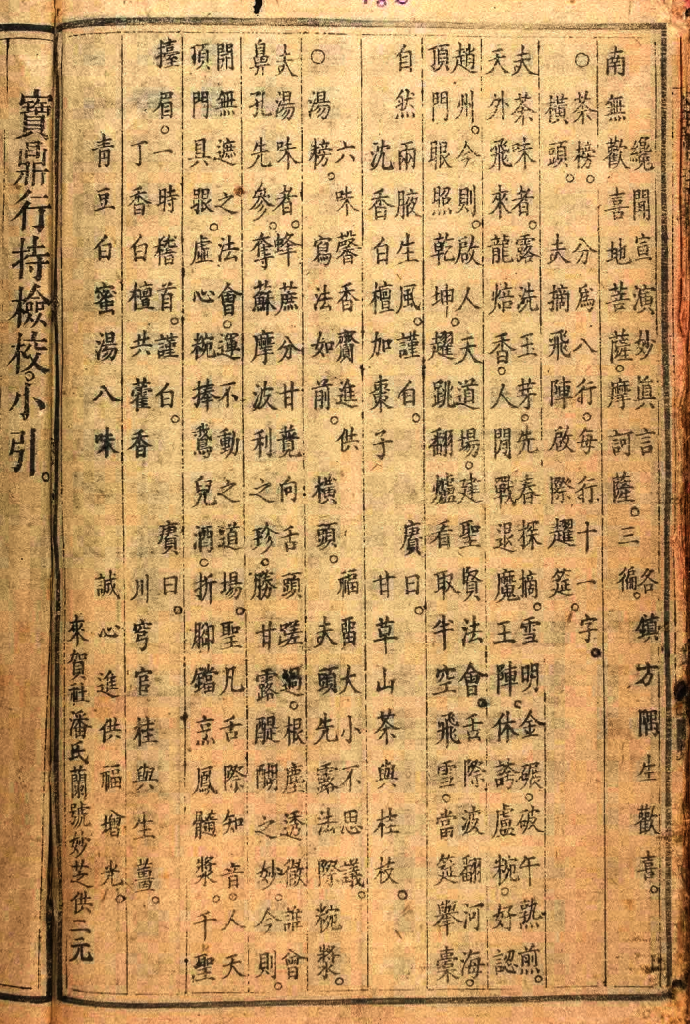 纔聞宣演妙眞言　各鎮方隅生歡喜。
南無歡喜地菩薩。摩訶薩。三徧。
○茶榜。分爲八行。每行十一字。
橫頭。夫摘飛陣啟際趯筵。
夫茶味者。露洗玉芽。先春探摘。雪明金碾。破午熟煎。
天外飛來龍焙香。人閒戰退魔王陣。休誇盧椀。好認
趙州。今則。啟人天道場。建聖賢法會。舌際波翻河海。
頂門眼照乾坤。趯跳翻爐看取半空飛雪。當筵舉橐
自然兩腋生風。謹白。　賡曰。
沈香白檀加棗子　甘草山茶與桂枝。
六味馨香齎進供　福畱大小不思議。
○湯榜。寫法如前。橫頭。夫頭先露法際椀漿。
夫湯味者。蜂蔗分甘向舌頭蹉過。根塵透徹誰會
鼻孔先參。奪蘇摩波利之珍。勝甘露醍醐之妙。今則。
開無遮之法會。運不動之道場。聖凡舌際知音。人天
頂門具眼。虛心椀捧鵞兒酒。折腳鐺烹鳳髓漿。千聖
擡眉。一時稽首。謹白。　賡曰。
丁香白檀共藿香　川芎官桂與生薑。
青豆白蜜湯八味　誠心進供福增光。
來賀社潘氏蘭號妙芝供二元
寶鼎行持檢校。小引。